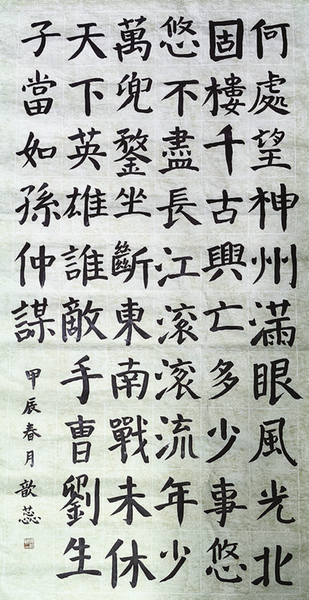 何處望神州滿眼風光北
固樓千古興亡多少事悠
悠不盡長江滾滾流年少
萬兜鍪坐斷東南戰未休
天下英雄誰敵手曹劉生
子當如孫仲謀
甲辰春月歆蕊